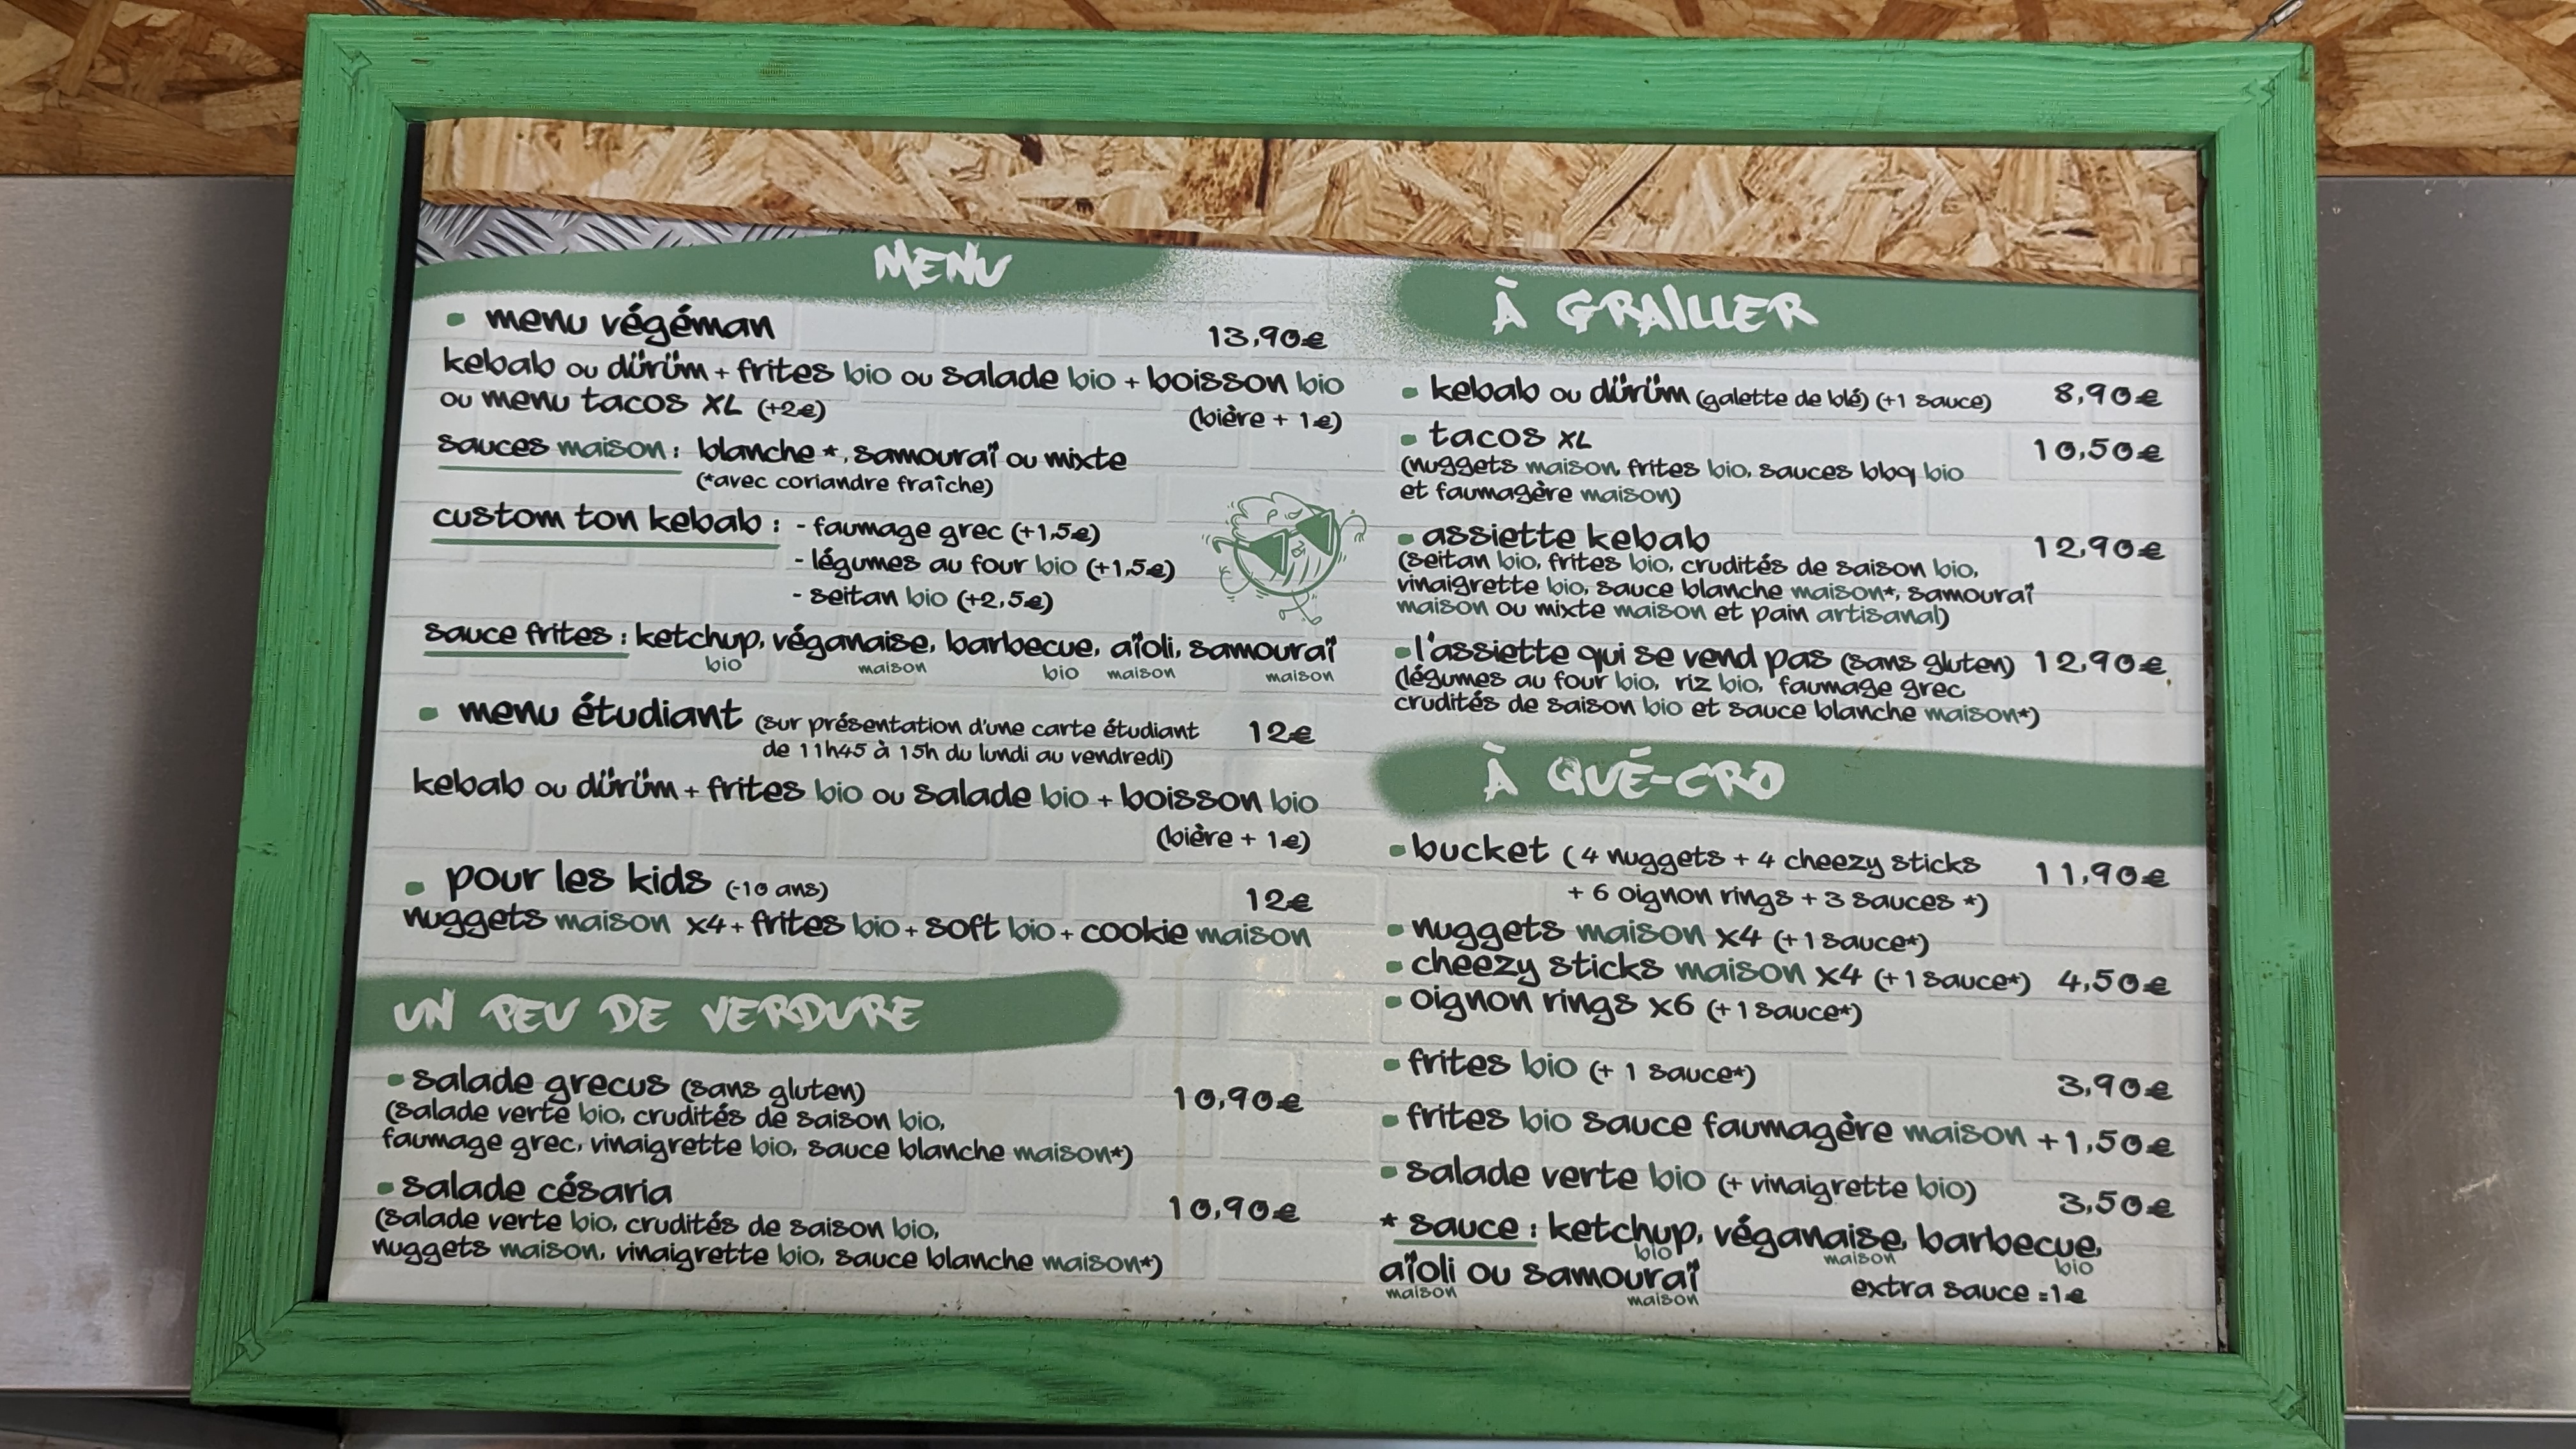 MENU
• menu végéman 13,90€
kebab ou dürüm + frites bio ou salade bio + boisson bio
ou menu tacos XL (+2€) (bière + 1€)
sauces maison : blanche*, samouraï ou mixte
(*avec coriandre fraîche)
custom ton kebab : - faumage grec (+1,5€)
- légumes au four bio (+1,5€)
- seitan bio (+2,5€)
sauce frites : ketchup, véganaise, barbecue, aïoli, samouraï
bio maison bio maison maison
• menu étudiant (sur présentation d'une carte étudiant 12€
de 11h45 à 15h du lundi au vendredi)
kebab ou dürüm + frites bio ou salade bio + boisson bio
(bière + 1€)
• pour les kids (-10 ans) 12€
nuggets maison x4 + frites bio + soft bio + cookie maison
UN PEU DE VERDURE
• salade grecus (sans gluten) 10,90€
(salade verte bio, crudités de saison bio,
faumage grec, vinaigrette bio, sauce blanche maison*)
• salade césaria 10,90€
(salade verte bio, crudités de saison bio,
nuggets maison, vinaigrette bio, sauce blanche maison*)
À GRAILLER
• kebab ou dürüm (galette de blé) (+1 sauce) 8,90€
• tacos XL 10,50€
(nuggets maison, frites bio, sauces bbq bio
et faumagère maison)
• assiette kebab 12,90€
(seitan bio, frites bio, crudités de saison bio,
vinaigrette bio, sauce blanche maison*, samouraï
maison ou mixte maison et pain artisanal)
• l'assiette qui se vend pas (sans gluten) 12,90€
(légumes au four bio, riz bio, faumage grec
crudités de saison bio et sauce blanche maison*)
À QUÉ-CRO
• bucket (4 nuggets + 4 cheezy sticks 11,90€
+ 6 oignon rings + 3 sauces *)
• nuggets maison x4 (+1 sauce*)
• cheezy sticks maison x4 (+1 sauce*) 4,50€
• oignon rings x6 (+1 sauce*)
• frites bio (+ 1 sauce*) 3,90€
• frites bio sauce faumagère maison +1,50€
• salade verte bio (+ vinaigrette bio) 3,50€
* sauce : ketchup, véganaise, barbecue,
bio maison bio
aïoli ou samouraï extra sauce =1€
maison maison